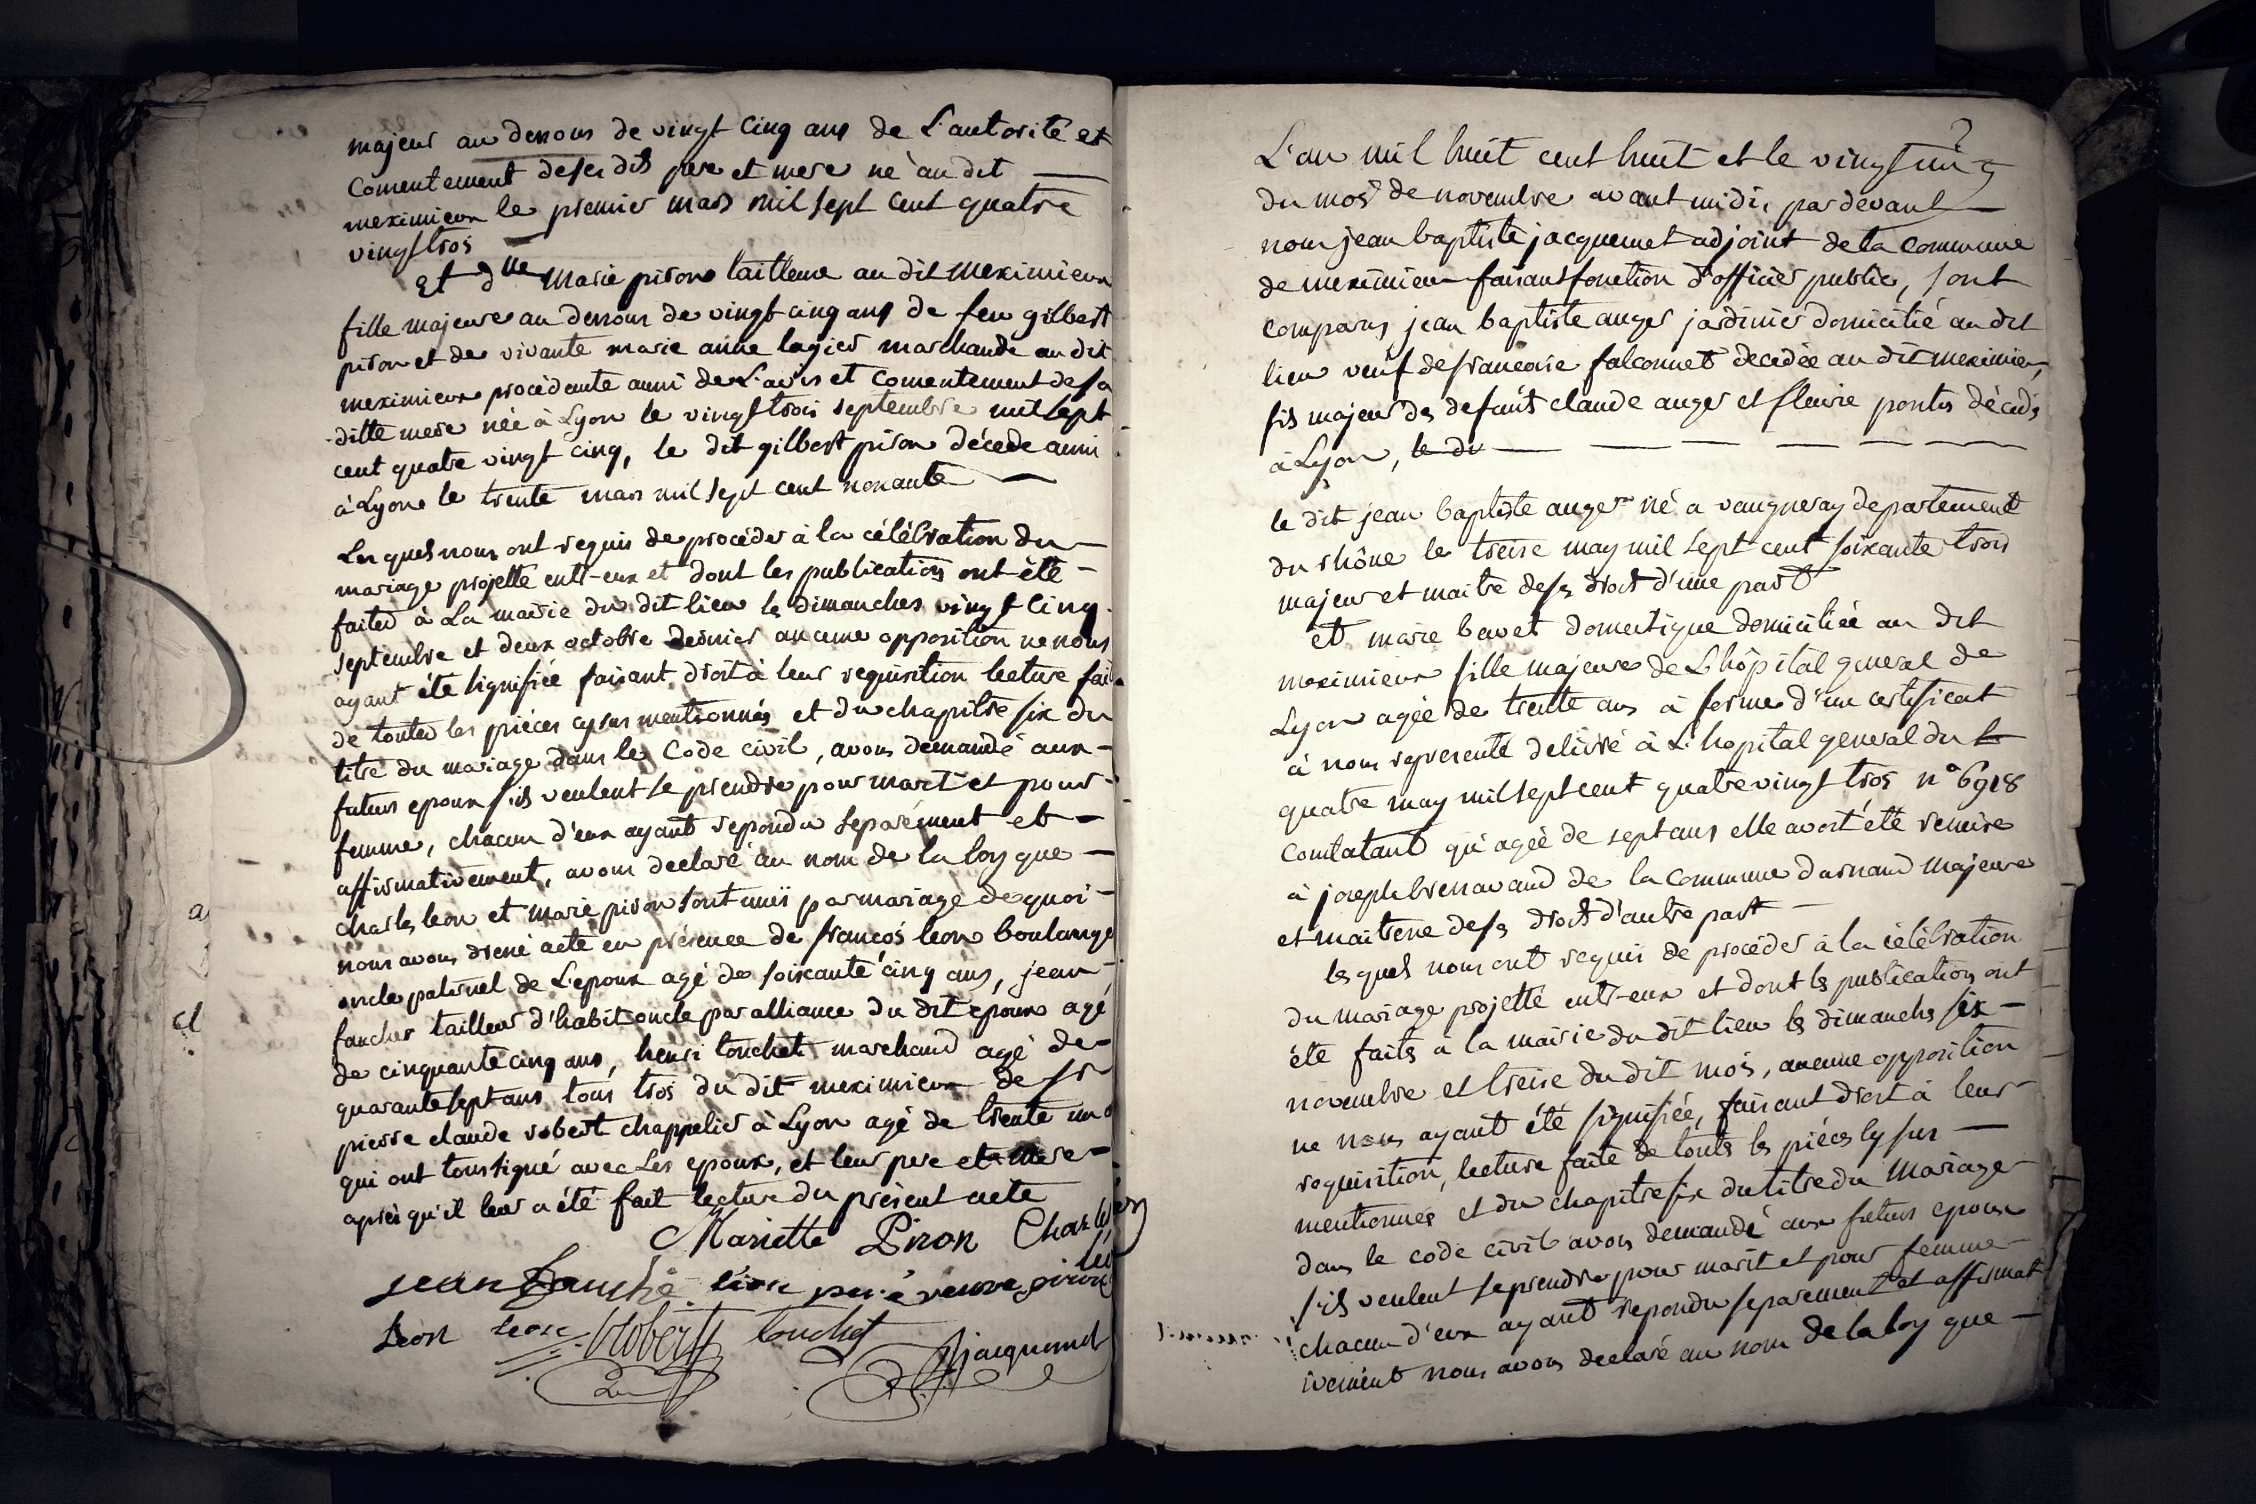 majeur au dessous de vingt cinq ans de L'autorité et
consentement deses dits pere et mere né au dit
meximieux le premier mars mil sept cent quatre
vingt trois
Et dlle Marie piron tailleuse au dit meximieux
fille majeure au dessous de vingt cinq ans de feu gilbert
piron et de vivante marie anne lagier marchande au dit
meximieux procédante aussi de L'avis et consentement de sa
ditte mere née à Lyon le vingt trois septembre mil sept
cent quatre vingt cinq, le dit gilbert piron décédé aussi
à Lyon le trente mars mil sept cent nonante
Les quels nous ont requis de procéder à la célébration du
mariage projetté entr-eux et dont les publications ont été
faites à La mairie du dit lieu le dimanches vingt cinq
septembre et deux octobre dernier aucune opposition ne nous
ayant été signifiée faisant droit à leur requisition lecture fait
de toutes les piéces cy sus mentionnées et du chapitre six du
titre du mariage dans le Code civil, avons demandé aux
futurs epoux s'ils veulent se prendre pour marit et pour
femme, chacun d'eux ayant repondu separément et
affirmativement, avons declaré au nom de la loy que
charles leon et marie piron sont unis par mariage de quoi
nous avons dressé acte en présence de françois leon boulanger
oncle paternel de L'epoux agé de soixante cinq ans, jean
faucher tailleur d'habit oncle par alliance du dit epoux agé
de cinquante cinq ans, henri touchet marchand agé de
quarante sept ans tous trois du dit meximieux de sr
pierre claude robert chappelier à Lyon agé de trente un
qui ont tous signé avec Les epoux, et leur pere et mere
après qu'il leur a été fait lecture du présent acte
Mariette Piron Charles
jean Fauché léon peré veuve piron
Leon leon Robert touchet
Jacquemet
L'an mil huit cent huit et le vingt cinq
du mois de novembre avant midi, par devant
nous jean baptiste jacquemet adjoint de la commune
de meximieux faisant fonction d'officier public, sont
comparus jean baptiste auger jardinier domicilié au dit
lieu veuf de francoise falconnet decedée au dit meximieux,
fils majeur des defunts claude auger et fleurie pontes décédés
à Lyon, le dit
le dit jean baptiste auger né a vaugneray departement
du rhône le treize may mil sept cent soixante trois
majeur et maitre de ses droits d'une part
et marie bavet domestique domiciliée au dit
meximieux fille majeure de L'hôpital general de
Lyon agée de trente ans à forme d'un certificat
à nous representé delivré à L'hopital general du
quatre may mil sept cent quatre vingt trois n° 6918
constatant qu'agée de sept ans elle avoit été remise
à joseph brenavand de la commune d'arnand majeure
et maitresse de ses droits d'autre part
les quels nous ont requis de procéder à la célébration
du mariage projetté entr-eux et dont les publications ont
été faits à la mairie du dit lieu les dimanches six
novembre et treize du dit mois, aucune opposition
ne nous ayant été signifiée, faisant droit à leur
requisition, lecture faite de touts les piéces cy sus
mentionnés et du chapitre six du titre du mariage
dans le code civil avons demandé aux futurs epoux
s'ils veulent se prendre pour marit et pour femme
chacun d'eux ayant repondu separement et affirmat
ivement nous avons declaré au nom de la loy que